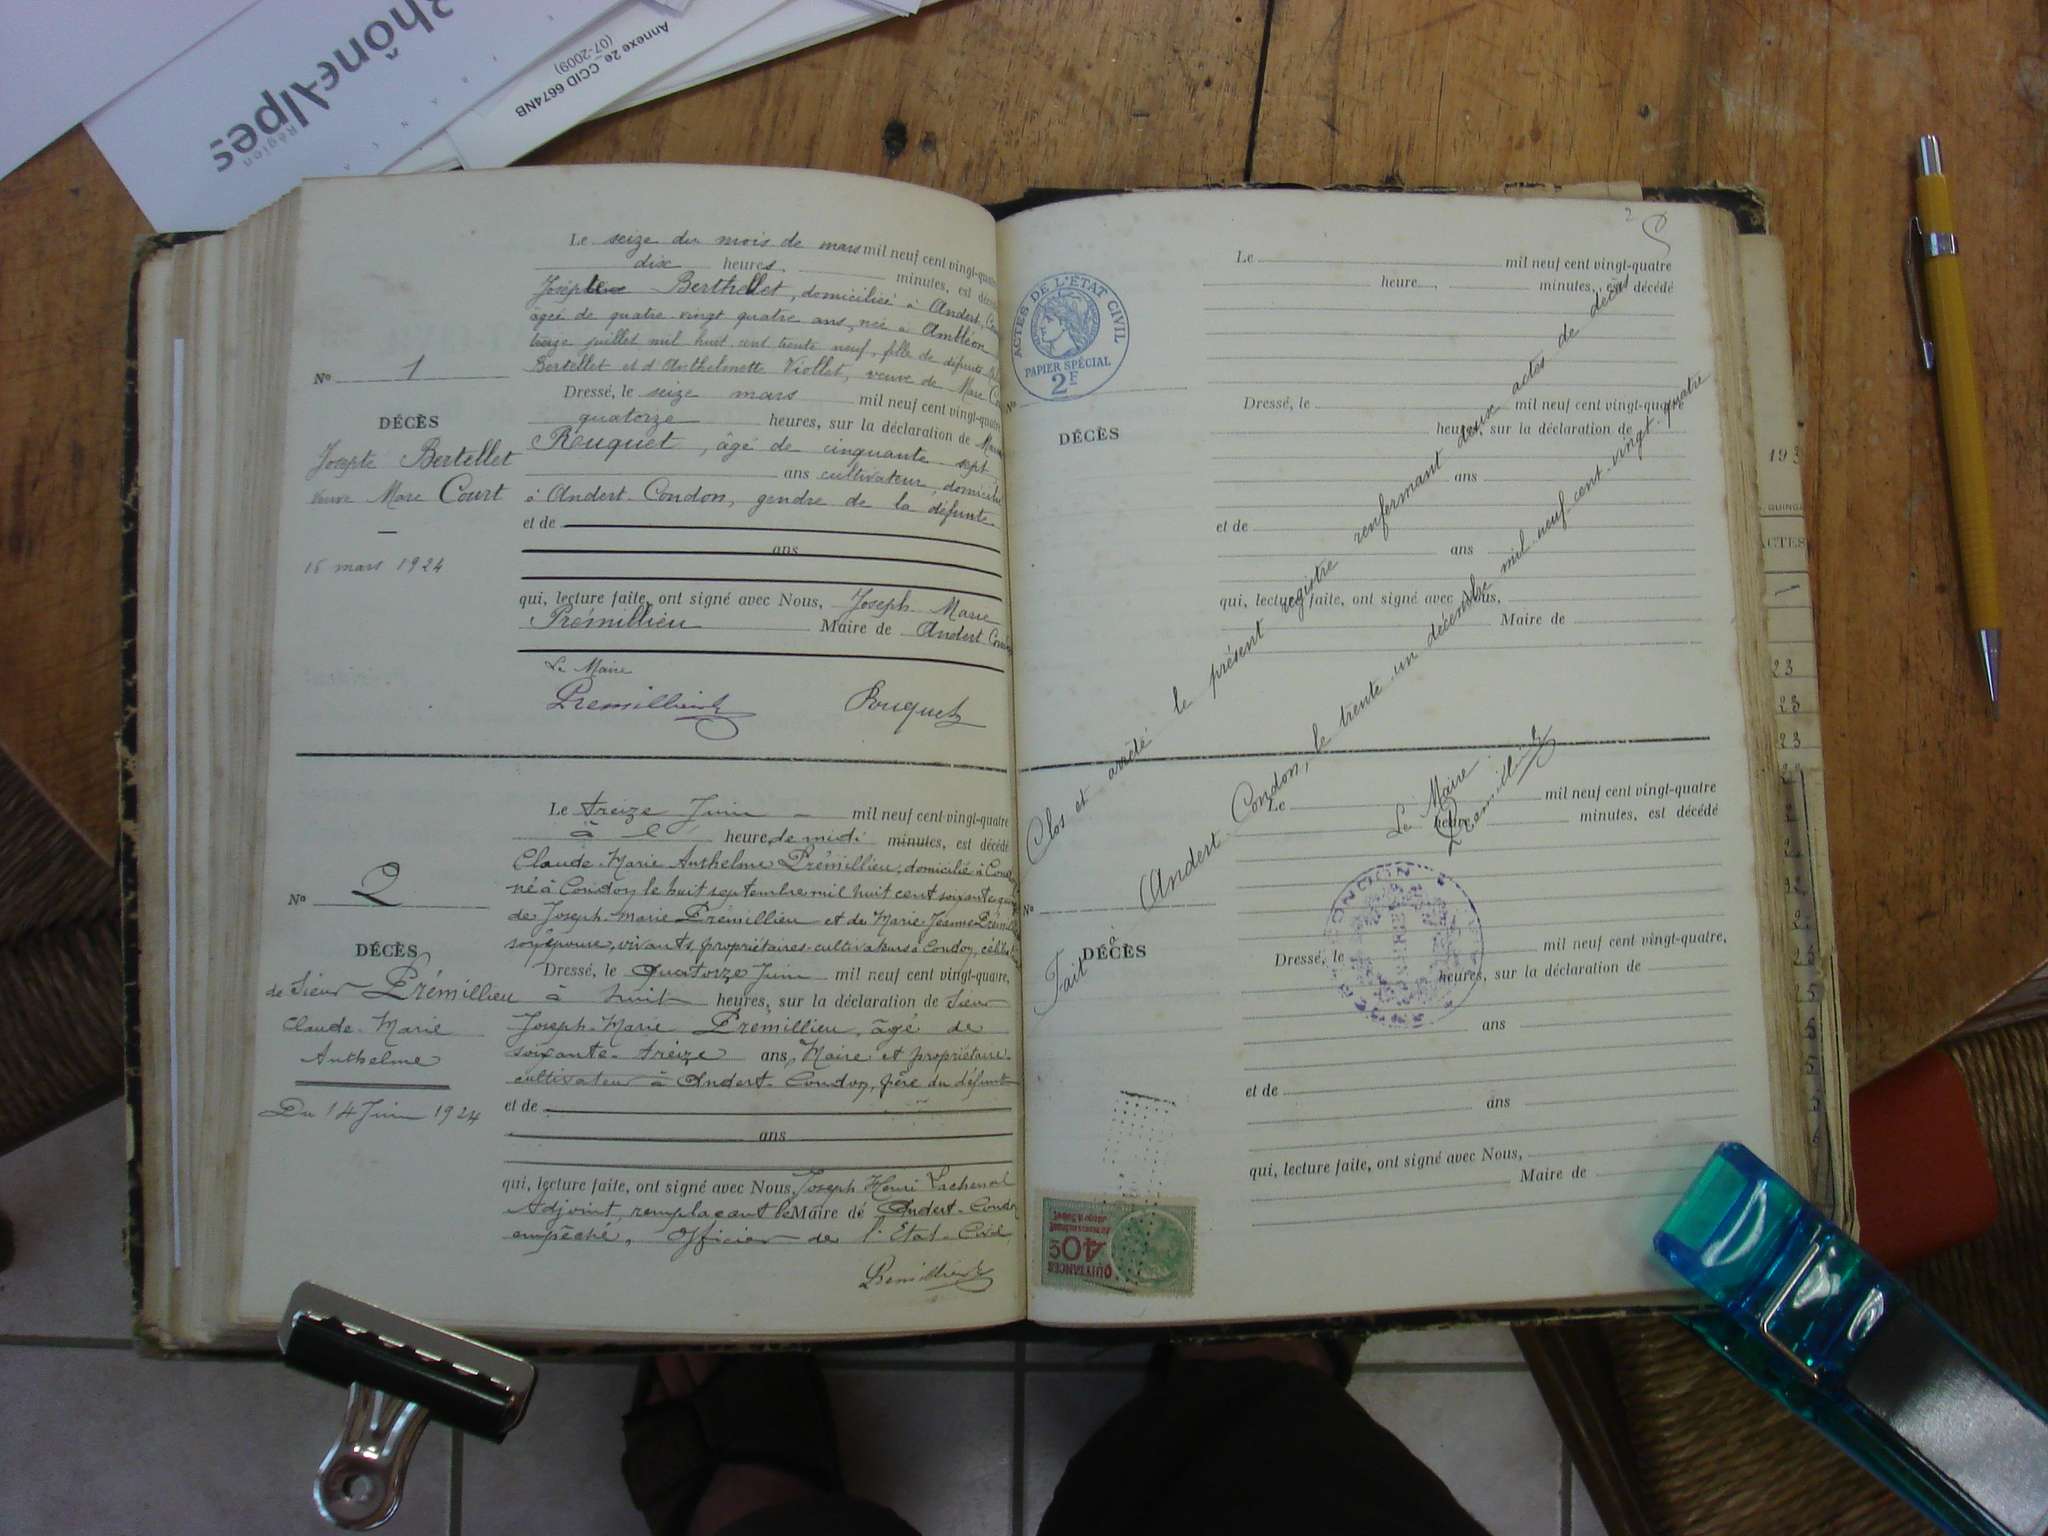 Rhône-Alpes
Région
Annexe 2e CCID 6674NB
(07-2009)
Le seize du mois de mars mil neuf cent vingt-quatre
dix heures, minutes, est décé
Josephe Berthellet, domiciliée à Andert, Con
âgée de quatre-vingt quatre ans, née à Ambléon
treize juillet mil huit cent trente neuf, fille de défunts
Bertellet et d'Anthelmette Viollet, veuve de Marc Co
Nº 1
DÉCÈS
Josepte Bertellet
veuve Marc Court
—
16 mars 1924
Dressé, le seize mars mil neuf cent vingt-quatre
quatorze heures, sur la déclaration de
Rouquet, âgé de cinquante-sept
ans cultivateur, domicilié
à Andert-Condon, gendre de la défunte
et de
ans
qui, lecture faite, ont signé avec Nous, Joseph Marie
Prémillieu Maire de Andert Condon
Le Maire
Premillieu Rouquet
Le treize Juin mil neuf cent vingt-quatre
à l' heure de midi minutes, est décédé
Claude-Marie Anthelme Prémillieu, domicilié à Con
né à Condon le huit septembre mil huit cent soixante
de Joseph-Marie Prémillieu et de Marie-Jeanne Prémi
son épouse, vivants, propriétaires-cultivateurs à Condon, célibat
Nº 2
DÉCÈS
de Sieur Prémillieu
Claude-Marie
Anthelme
Du 14 Juin 1924
Dressé, le Quatorze Juin mil neuf cent vingt-quatre,
à huit heures, sur la déclaration de Sieur
Joseph-Marie Prémillieu, âgé de
soixante-treize ans, Maire et propriétaire-
cultivateur à Andert-Condon, père du défunt
et de
ans
qui, lecture faite, ont signé avec Nous, Joseph Henri Lachenal
Adjoint, remplaçant le Maire de Andert-Condon
empêché, Officier de l'Etat-Civil
Premillieu
2
ACTES DE L'ÉTAT CIVIL
PAPIER SPÉCIAL
2F
Le mil neuf cent vingt-quatre
heure, minutes, est décédé
Nº
DÉCÈS
Dressé, le mil neuf cent vingt-quatre
heures, sur la déclaration de
ans
et de
ans
qui, lecture faite, ont signé avec Nous,
Maire de
Clos et arrêté le présent registre renfermant deux actes de décès
Fait à Andert-Condon, le trente-un décembre mil neuf cent vingt-quatre
Le Maire
Premillieu
Le mil neuf cent vingt-quatre
heure minutes, est décédé
Nº
DÉCÈS
Dressé, le mil neuf cent vingt-quatre,
heures, sur la déclaration de
ans
et de
ans
qui, lecture faite, ont signé avec Nous,
Maire de
CONDON
MAIRIE
QUITTANCES
40c
193
QUINQ
ACTES
1
23
23
23